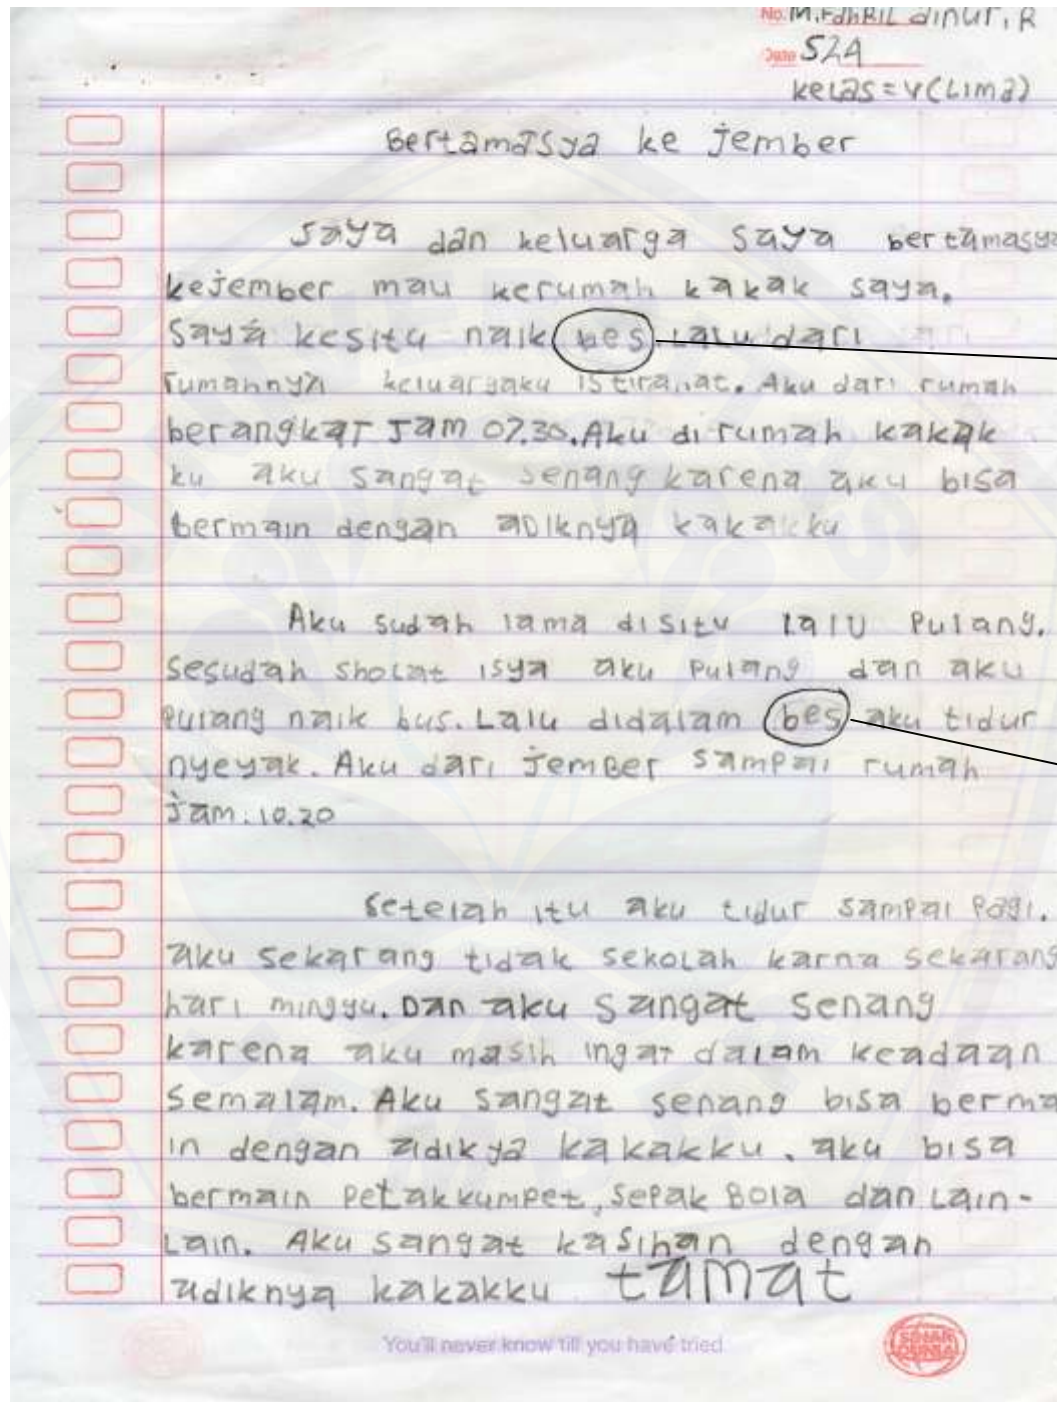 No. M. Fdhril dinur. R
Date 524
kelas = V (Lima)
Bertamasya ke jember
Saya dan keluarga saya bertamasya
kejember mau kerumah kakak saya.
Saya kesitu naik bes. Lalu dari
rumahnya keluargaku istirahat. Aku dari rumah
berangkat jam 07.30. Aku dirumah kakak
ku aku sangat senang karena aku bisa
bermain dengan adiknya kakakku
Aku sudah lama disitu lalu pulang.
Sesudah sholat isya aku pulang dan aku
pulang naik bus. Lalu didalam bes aku tidur
nyeyak. Aku dari jember sampai rumah
jam. 10.20
Setelah itu aku tidur sampai pagi.
aku sekarang tidak sekolah karna sekarang
hari minggu. Dan aku sangat senang
karena aku masih ingat dalam keadaan
semalam. Aku sangat senang bisa berma
in dengan adikya kakakku. aku bisa
bermain petak kumpet, sepak Bola dan Lain-
Lain. Aku sangat kasihan dengan
adiknya kakakku tamat
You'll never know till you have tried
SINAR DUNIA